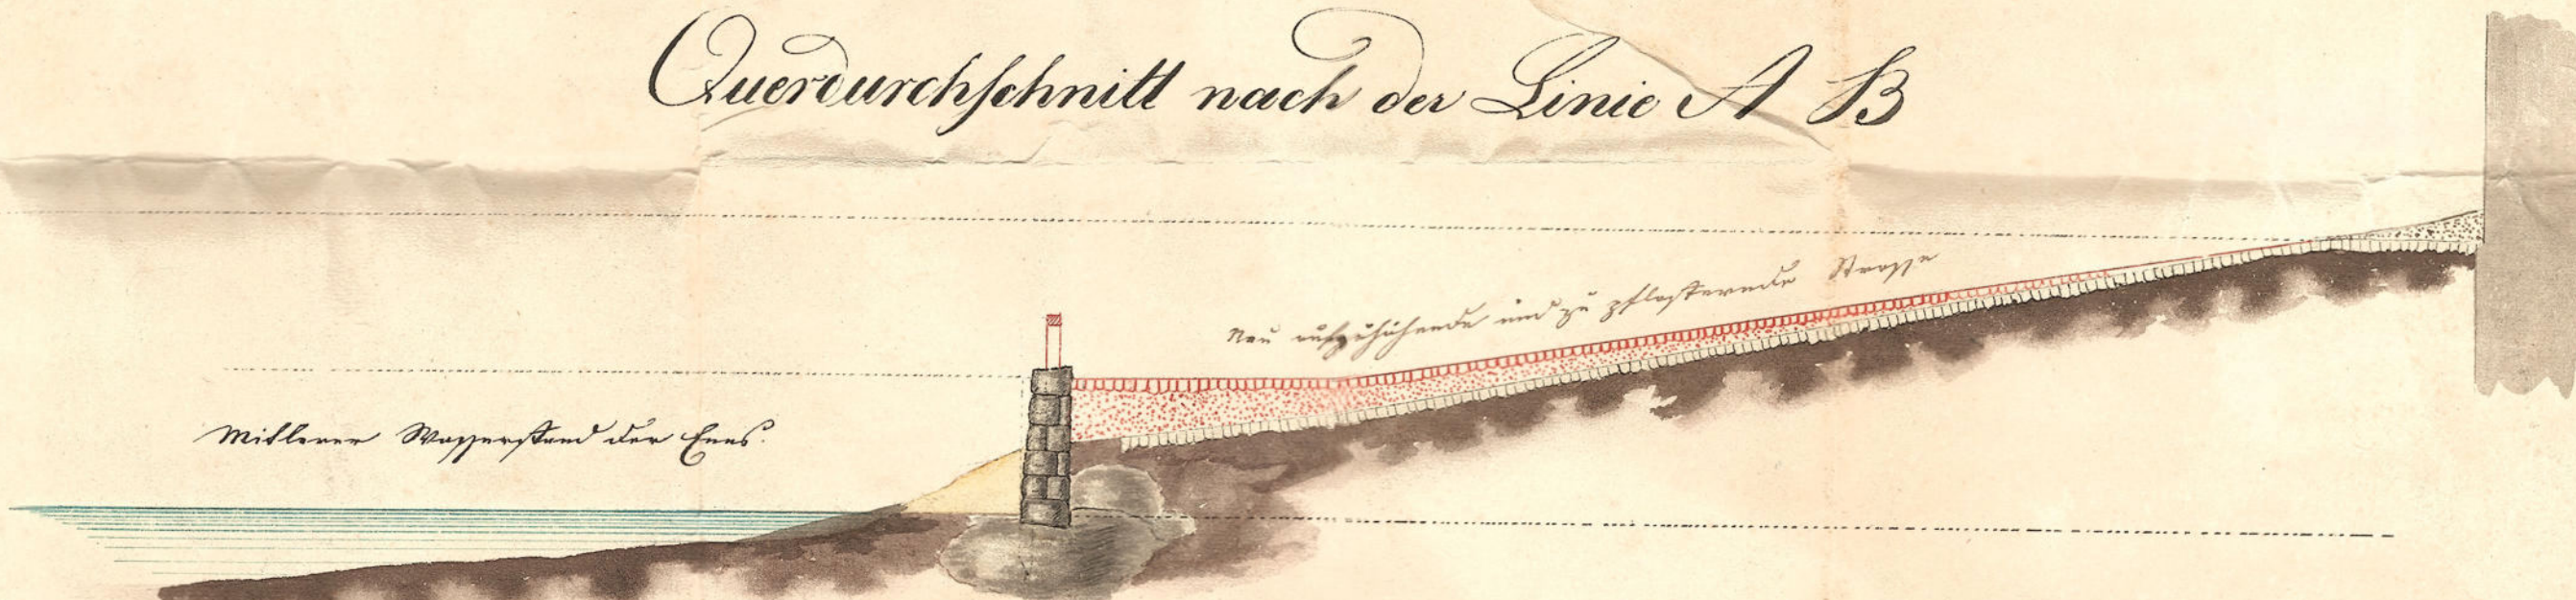 Querdurchschnitt nach der Linie A B
Neu aufzuhöhende und zu pflasternde Strasse
Mittlerer Wasserstand der Enns.